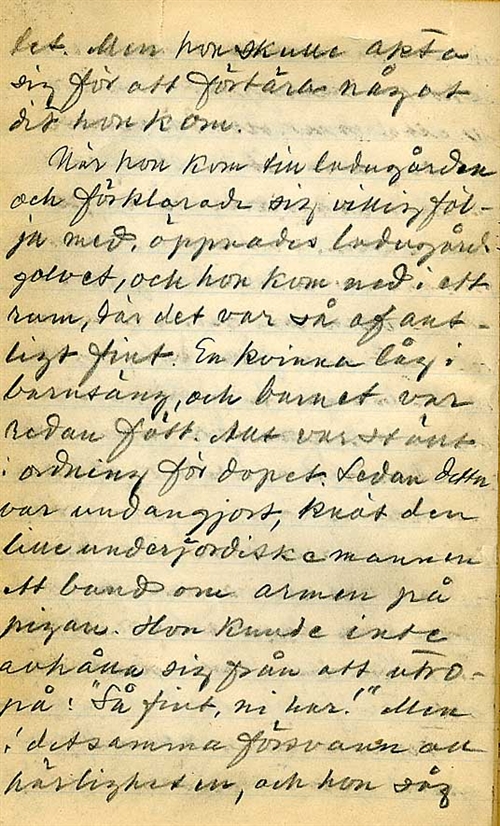 let. Men hon skulle akta
sig för att förtära något
dit hon kom.
När hon kom till ladugården
och förklarade sig villig föl-
ja med, öppnades ladugårds-
golvet, och hon kom ned i ett
rum, där det var så ofant-
ligt fint. En kvinna låg i
barnsäng, och barnet var
redan fött. Allt var ställt
i ordning för dopet. Sedan detta
var undangjort, knöt den
lille underjordiske mannen
ett band om armen på
pigan. Hon kunde inte
avhålla sig från att utro-
pa: "Så fint, ni har!" Men
i detsamma försvann all
härligheten, och hon såg